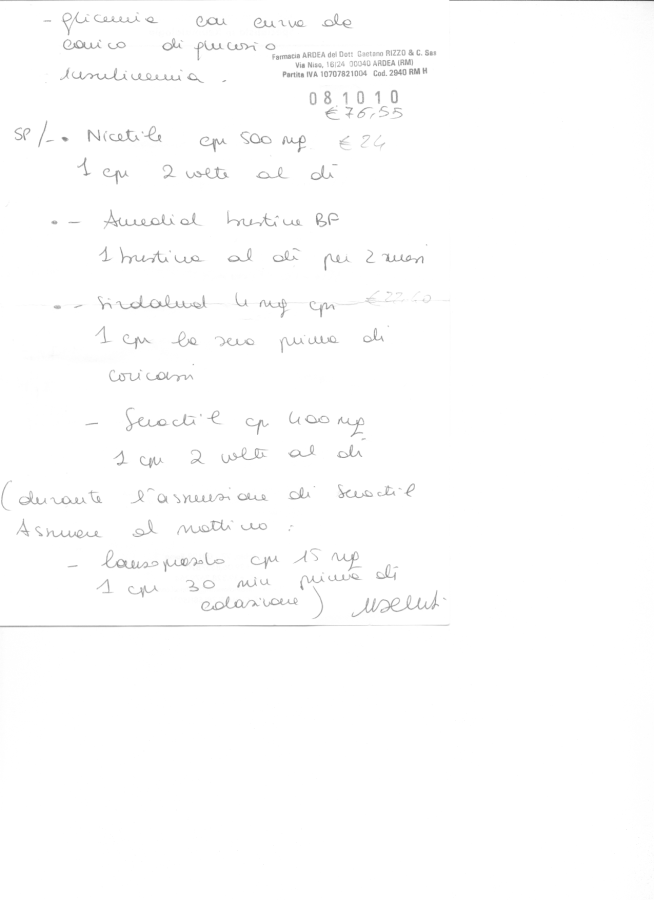 - glicemia con curva da
carico di glucosio
insulinemia.
Farmacia ARDEA del Dott. Gaetano RIZZO & C. Sas
Via Niso, 16/24 00040 ARDEA (RM)
Partita IVA 10707821004 Cod. 2940 RM H
081010
€76,55
SP/-. Nicetile cpr 500 mg €24
1 cpr 2 volte al dì
- Amedial bustine BP
1 bustina al dì per 2 mesi
- Sirdalud 4 mg cpr
1 cpr la sera prima di
coricarsi
- Seractil cp 400 mg
1 cpr 2 volte al dì
(durante l'assunzione di Seractil
Assumere al mattino:
- lansoprazolo cpr 15 mg
1 cpr 30 min prima di
colazione)